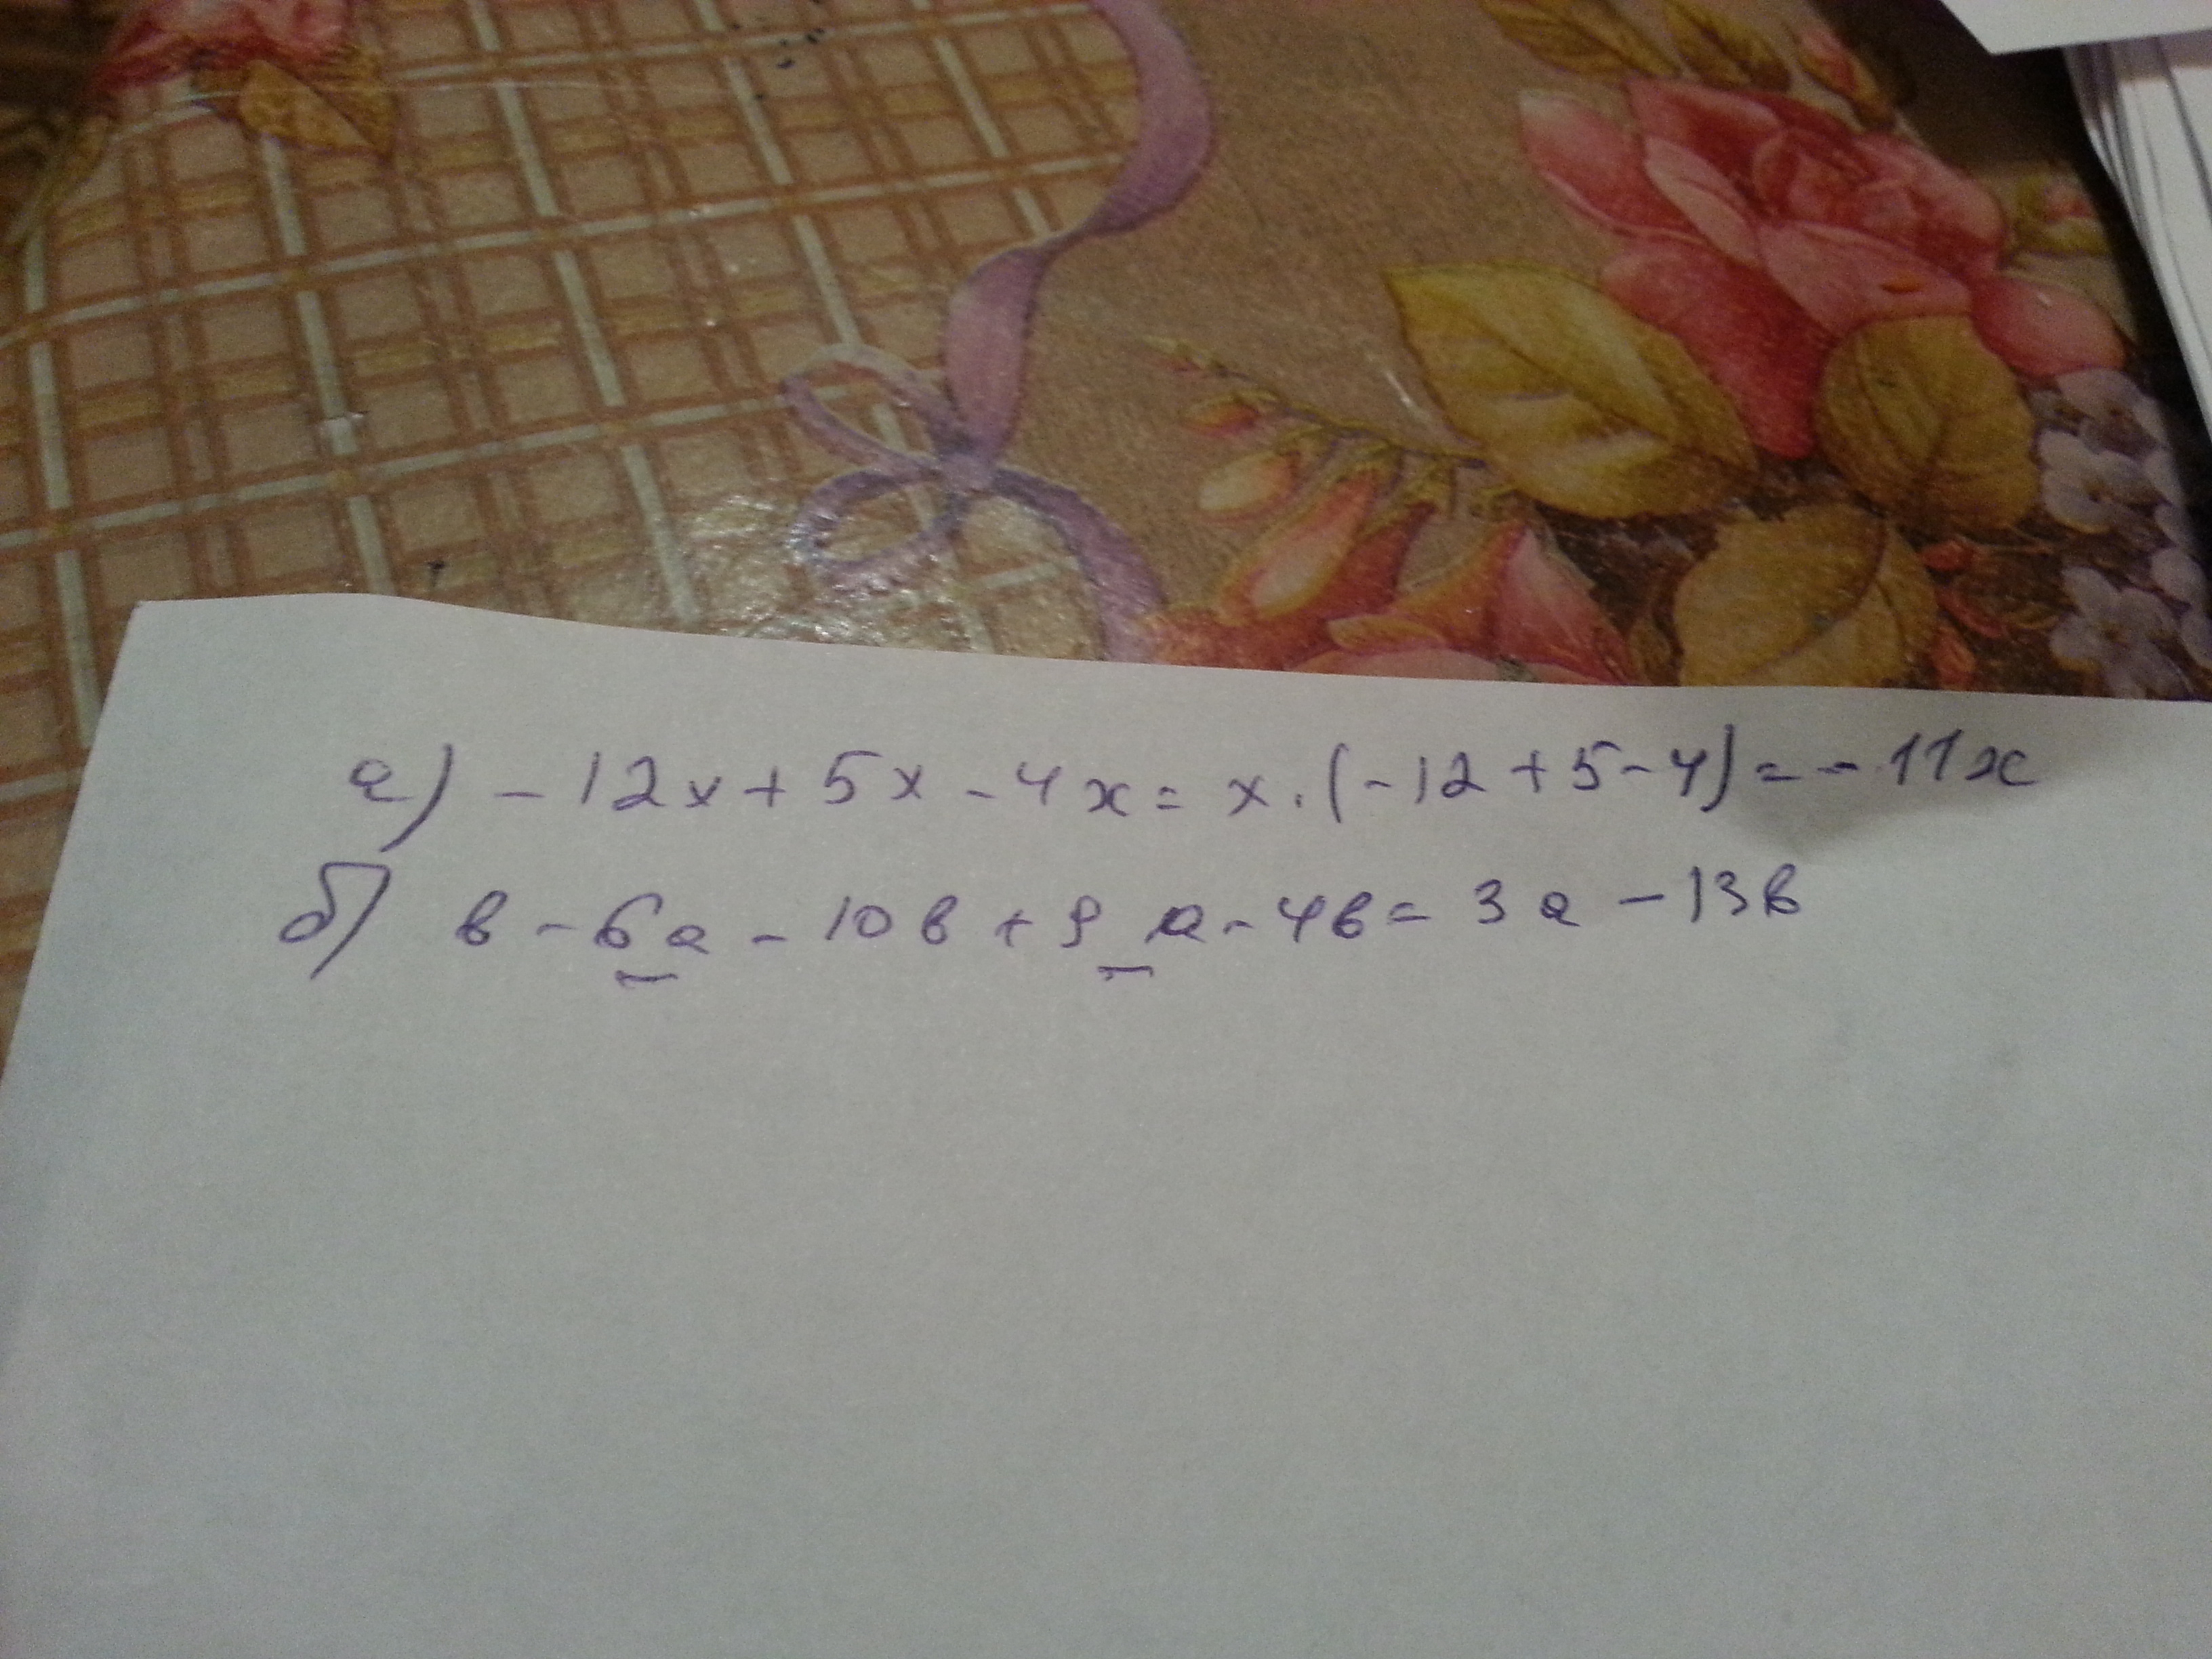 а) - 12x + 5x - 4x = x · (-12 + 5 - 4) = - 11x
б) в - 6а - 10в + 9а - 4в = 3а - 13в